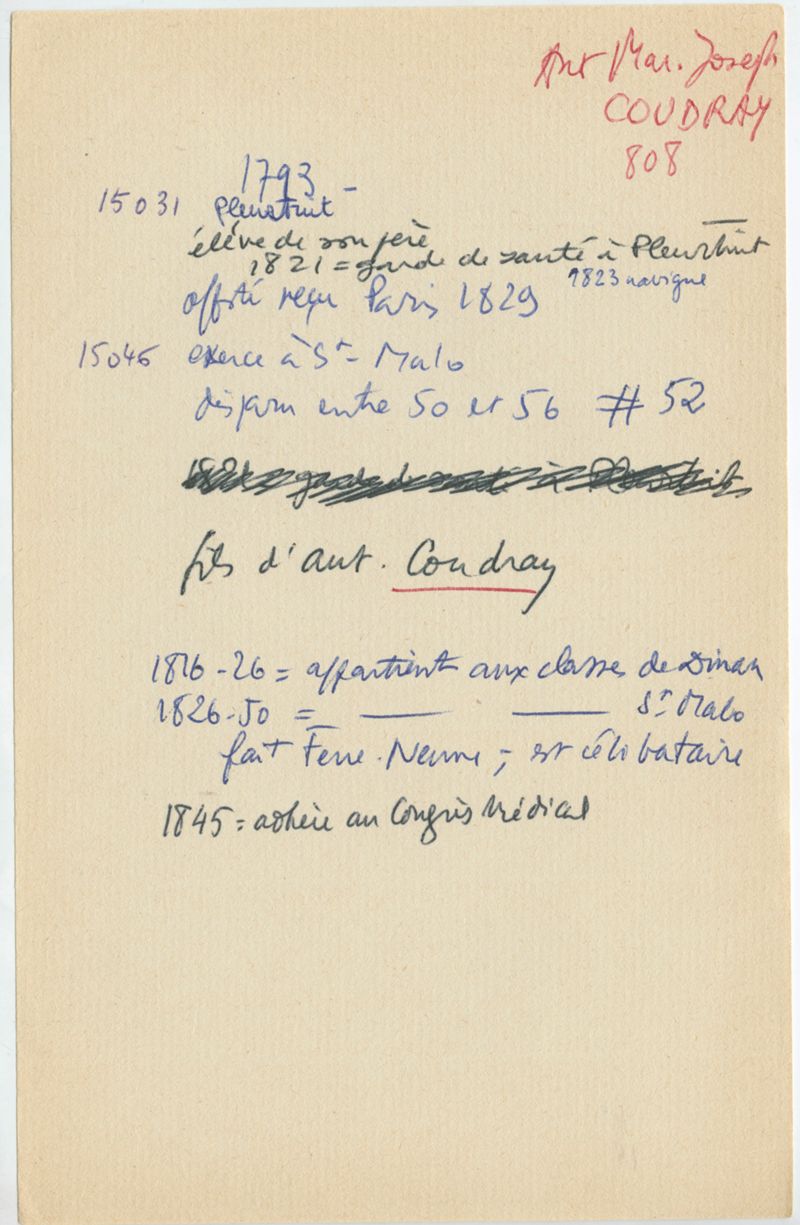 Ant Mar. Joseph
COUDRAY
808
1793 -
15031 pleurtuit
élève de son père
1821 = garde de santé à Pleurtuit
1823 navigue
offste reçu Paris 1829
15045 exerce à St- Malo
disparu entre 50 et 56 # 52
fils d'Ant. Coudray
1816-26 = appartient aux classes de Dinan
1826-50 = — — St Malo
fait Terre-Neuve ; est célibataire
1845 = adhère au Congrès Médical